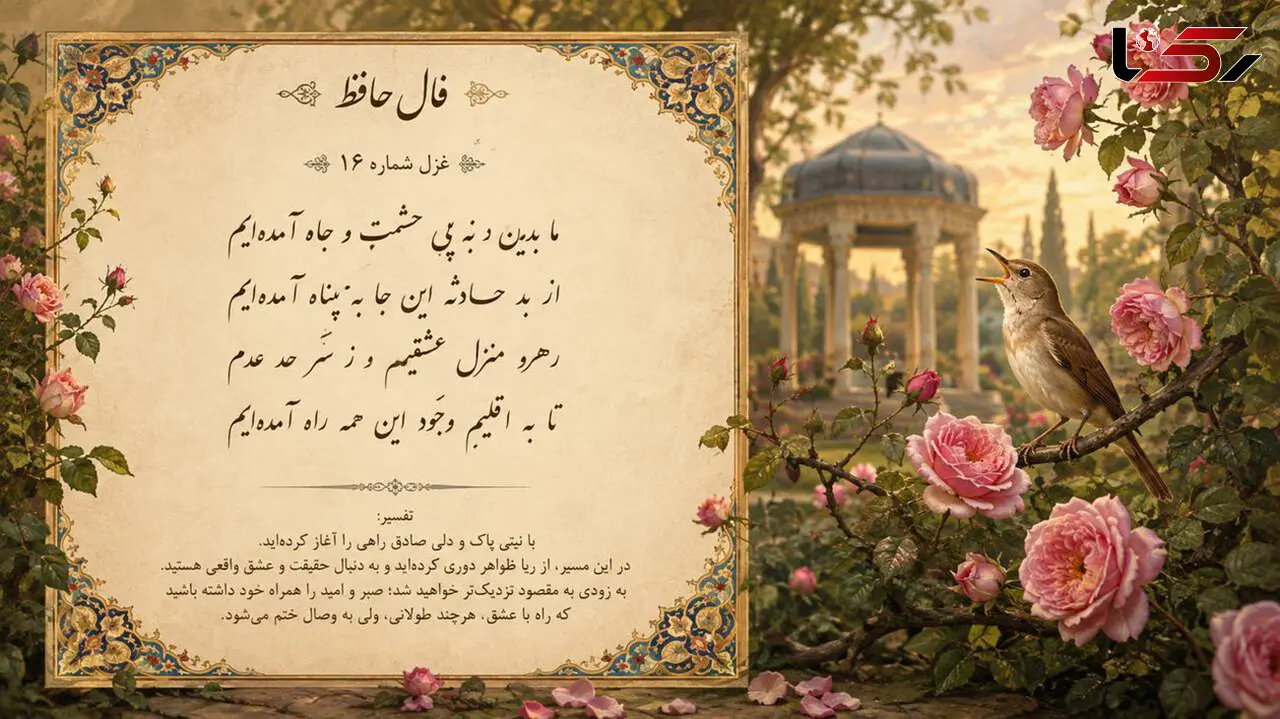 فال حافظ
غزل شماره ۱۶
ما بدین د نه پی حشمت و جاه آمده‌ایم
از بد حادثه این جا به پناه آمده‌ایم
رهرو منزل عشقیم و ز سَر حد عدم
تا به اقلیم وجَود این همه راه آمده‌ایم
تفسیر:
با نیتی پاک و دلی صادق راهی را آغاز کرده‌اید.
در این مسیر، از ریا ظواهر دوری کرده‌اید و به دنبال حقیقت و عشق واقعی هستید.
به زودی به مقصود تزدیک‌تر خواهید شد؛ صبر و امید را همراه خود داشته باشید
که راه با عشق، هرچند طولانی، ولی به وصال ختم می‌شود.
رکنا